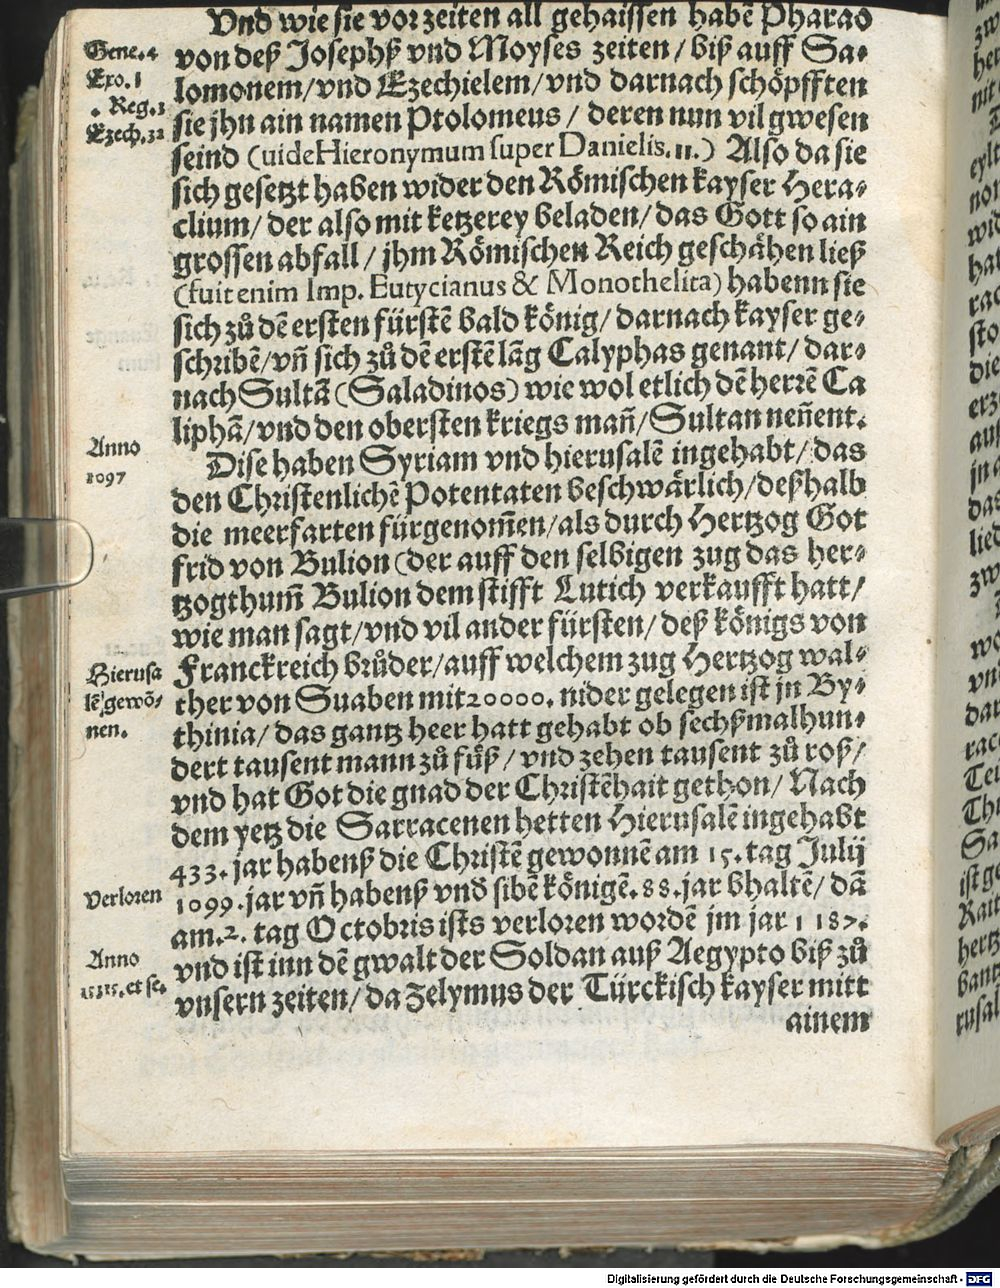 Vnd wie sie vor zeiten all gehaissen habē Pharao
Gene. 4
von deß Josephß vnd Moyses zeiten / biß auff Sa-
Exo. 1
lomonem/vnd Ezechielem/vnd darnach schöpfften
. Reg. 3
sie jhn ain namen Ptolomeus / deren nun vil gwesen
Ezech. 32
seind (uide Hieronymum super Danielis. 11.) Also da sie
sich gesetzt haben wider den Römischen kayser Hera-
clium/ der also mit ketzerey beladen/ das Gott so ain
grossen abfall / jhm Römischen Reich geschåhen ließ
(fuit enim Imp. Eutycianus & Monothelita) habenn sie
sich zů dē ersten fürstē bald könig/ darnach kayser ge-
schribē/vñ sich zů dē erstē lāg Calyphas genant/ dar-
nach Sultā (Saladinos) wie wol etlich dē herrē Ca
liphā/vnd den obersten kriegs mañ/Sultan neñent.
Anno
1097
Dise haben Syriam vnd hierusalē ingehabt/ das
den Christenlichē Potentaten beschwårlich/deßhalb
die meerfarten fürgenom̃en/als durch Hertzog Got
frid von Bulion (der auff den selbigen zug das her-
tzogthum̃ Bulion dem stifft Lutich verkaufft hatt/
wie man sagt/vnd vil ander fürsten/ deß königs von
Hierusa
lē gewō-
nen.
Franckreich brůder/auff welchem zug Hertzog wal-
ther von Suaben mit 20000. nider gelegen ist jn By-
thinia/ das gantz heer hatt gehabt ob sechßmalhun-
dert tausent mann zů fůß / vnd zehen tausent zů roß/
vnd hat Got die gnad der Christēhait gethon/ Nach
dem yetz die Sarracenen hetten Hierusalē ingehabt
433. jar habenß die Christē gewonnē am 15. tag Julij
Verloren
1099. jar vñ habenß vnd sibē königē. 88. jar bhaltē/ dā
am. 2. tag Octobris ists verloren wordē jm jar 1187.
Anno
vnd ist inn dē gwalt der Soldan auß Aegypto biß zů
1515. et se.
vnsern zeiten/ da Zelymus der Türckisch kayser mitt
ainem
Digitalisierung gefördert durch die Deutsche Forschungsgemeinschaft - DFG